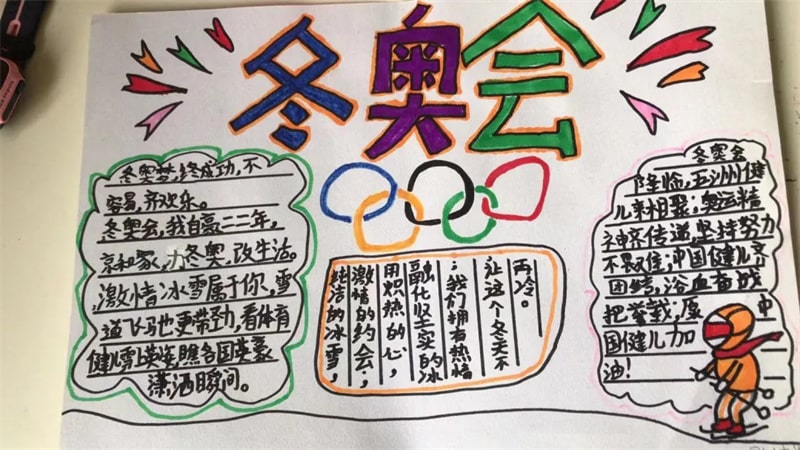 冬奥会
冬奥梦，终成功，不
容易，齐欢乐。
冬奥会，我自豪二二年，
京和家，力冬奥，改生活。
激情冰雪属于你，雪
道飞马也更带劲，看体育
健儿雪上英姿，瞧各国英豪
潇洒瞬间。
纯洁的冰雪，
激情的约会，
用炽热的心，
融化坚实的冰
；我们拥有热情
让这个冬天不
再冷。
冬奥会
降临，五洲健
儿来相聚；奥运精
神齐传递，坚持努力
不畏难；中国健儿齐
团结，浴血奋战
把誉载；愿中
国健儿加
油！